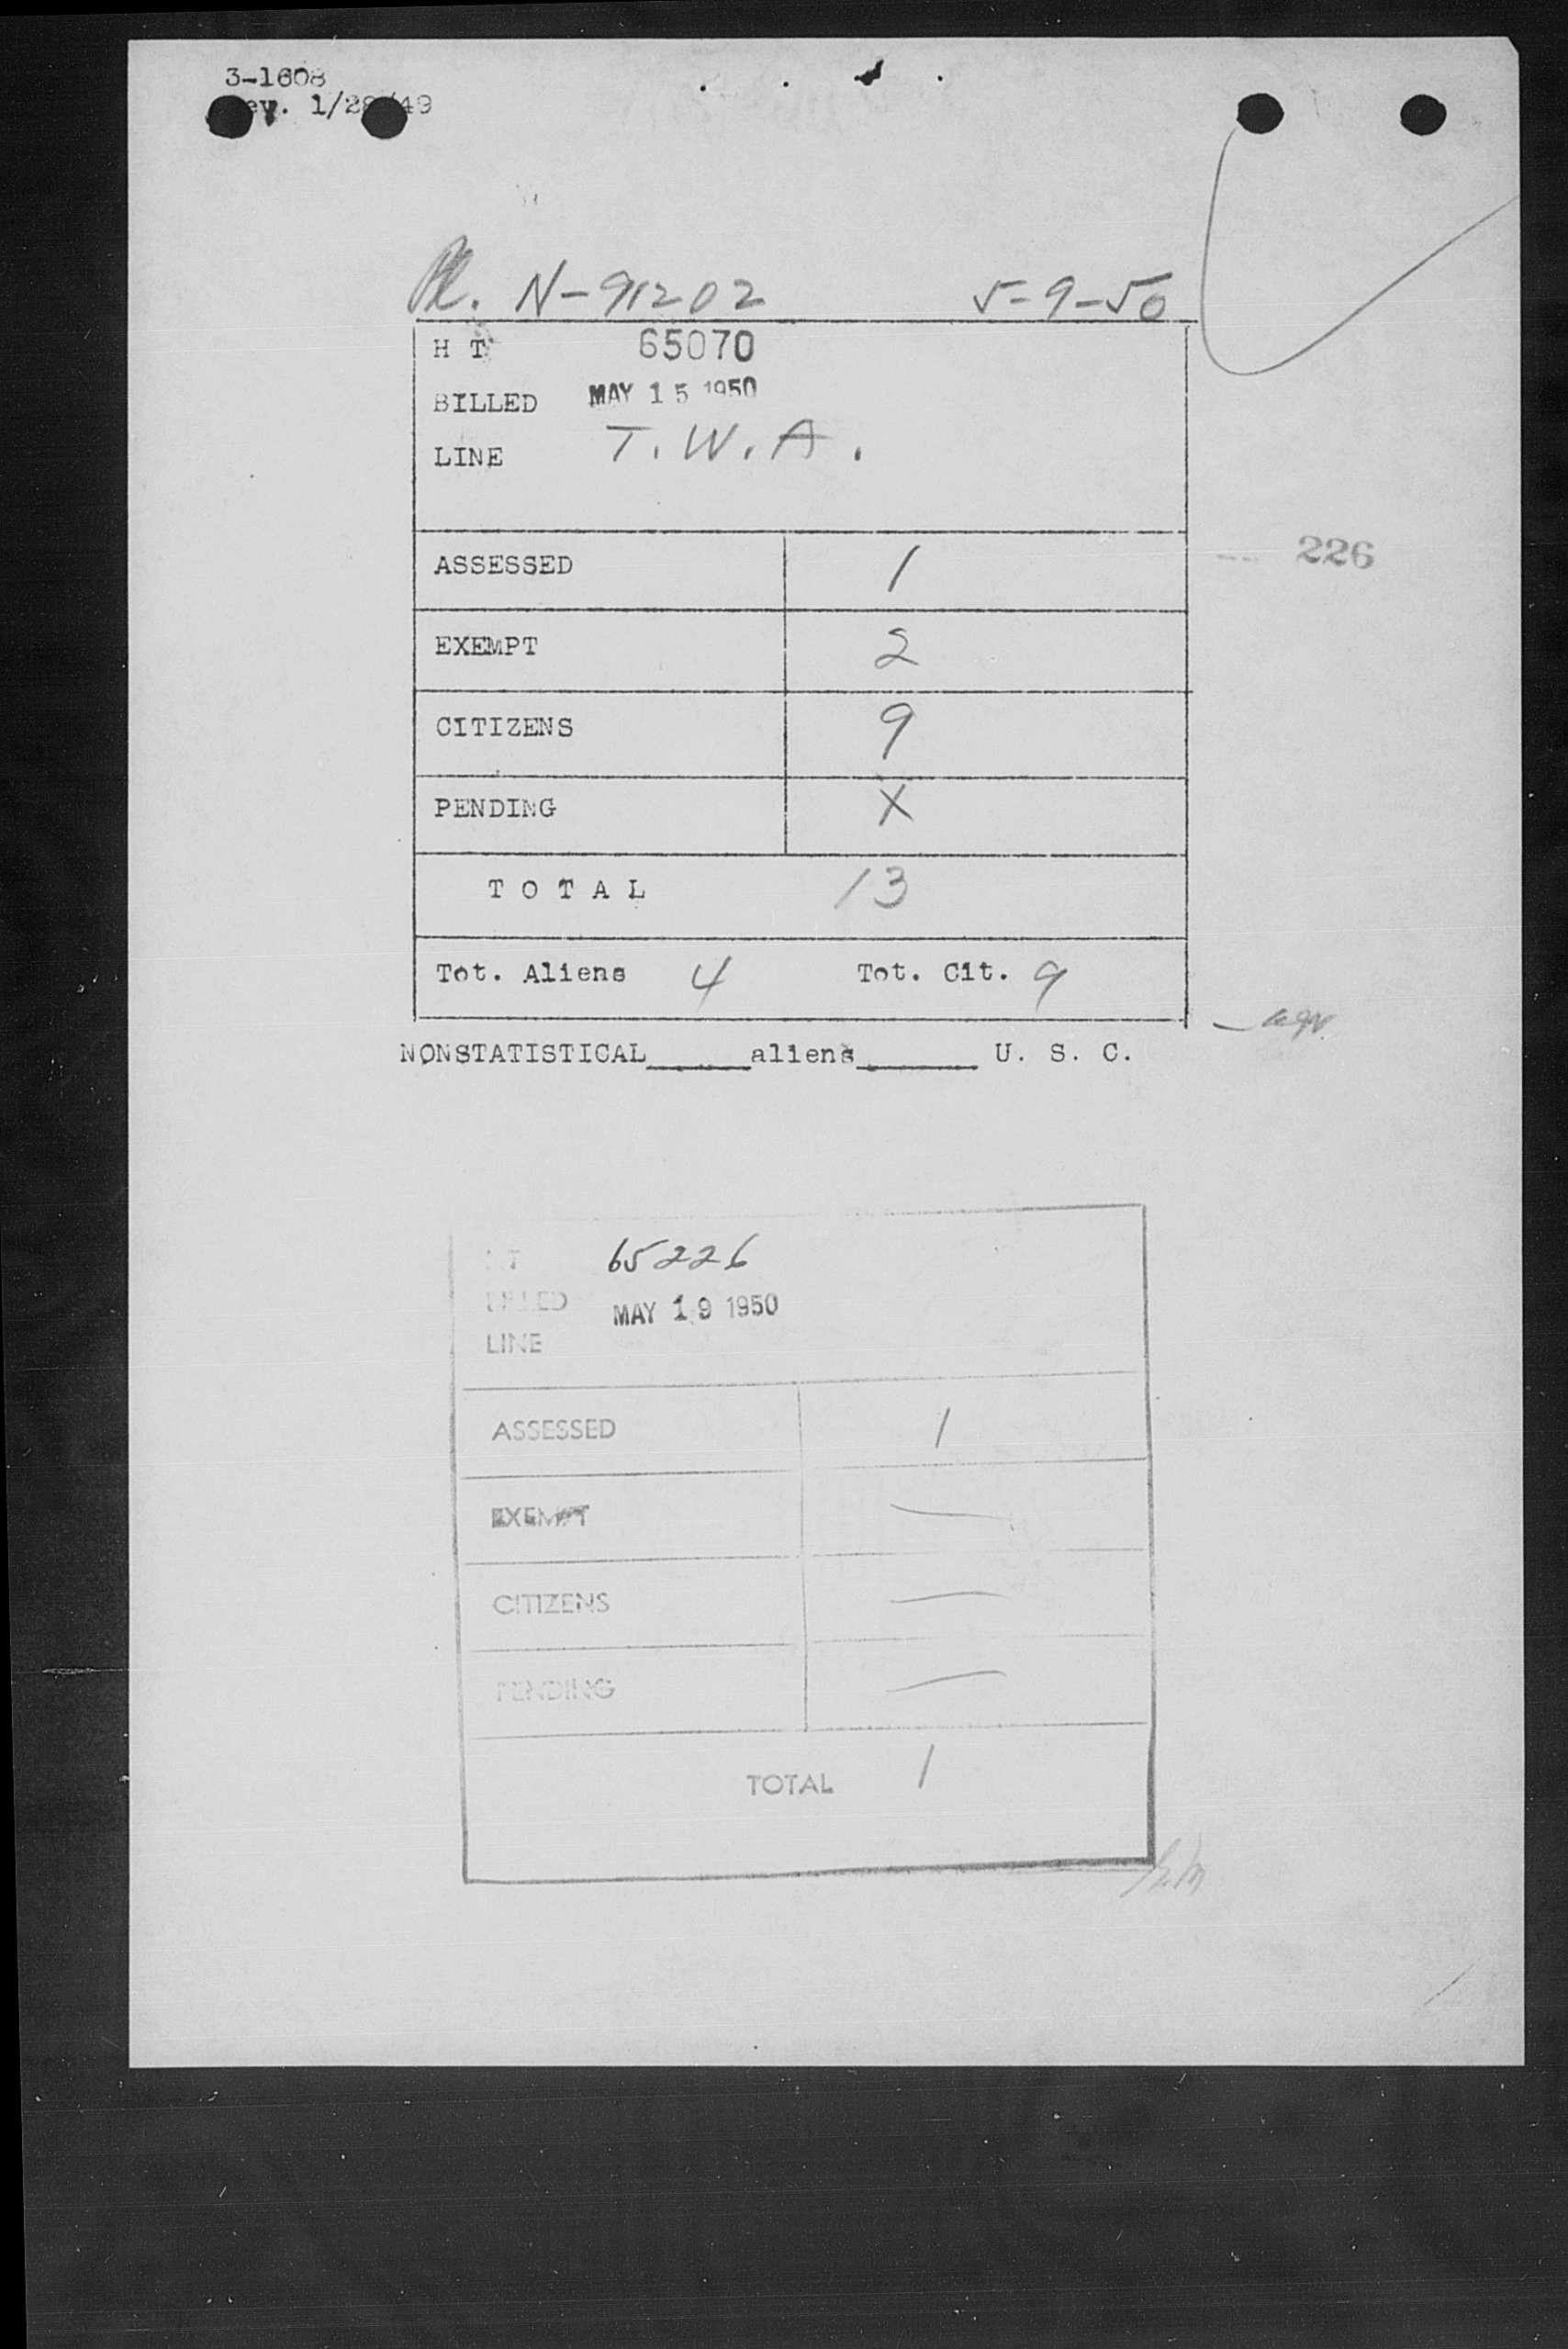 3-1608
Rev. 1/28/49
Pl. N-91202 5-9-50
H T 65070
BILLED MAY 15 1950
LINE T.W.A.
ASSESSED 1
226
EXEMPT 2
CITIZENS 9
PENDING X
TOTAL 13
Tot. Aliens 4 Tot. Cit. 9
NONSTATISTICAL_____aliens______ U. S. C.
HT 65226
BILLED MAY 19 1950
LINE
ASSESSED 1
EXEMPT —
CITIZENS —
PENDING —
TOTAL 1